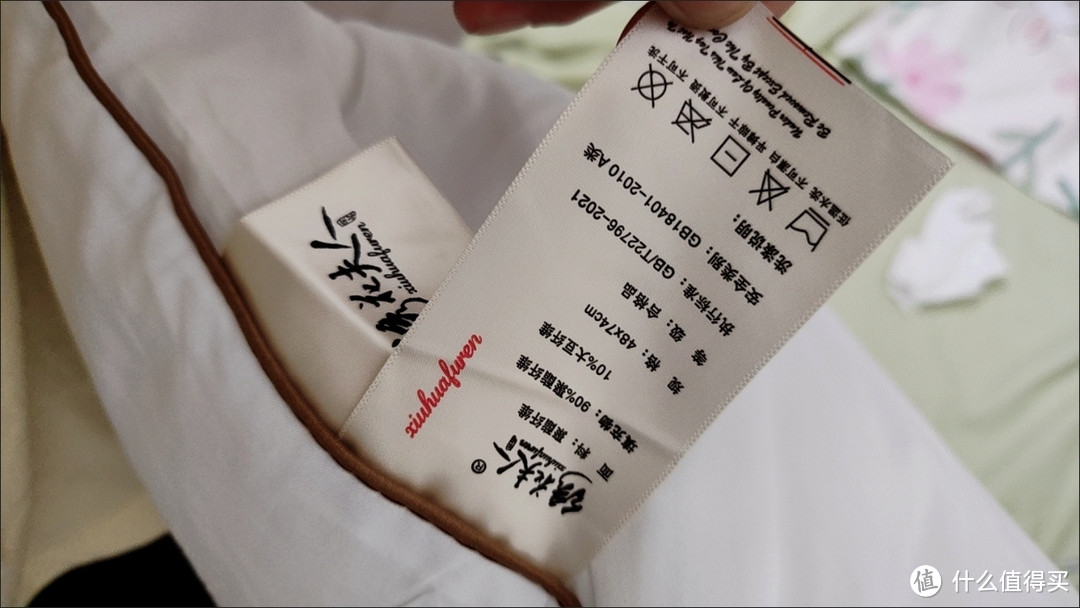 绣花夫人®
xiuhuafuren
xiuhuafuren
面 料：聚酯纤维
填充物：90%聚酯纤维
10%大豆纤维
规 格：48x74cm
等 级：合格品
执行标准：GB/T22796-2021
安全类别：GB18401-2010 A类
洗涤说明：
低温水洗 不可漂白 平摊晾干 不可熨烫 不可干洗
Under Penalty Of Law This Tag Not To
Be Removed Except By The
花夫人
xiuhuafuren
值 什么值得买